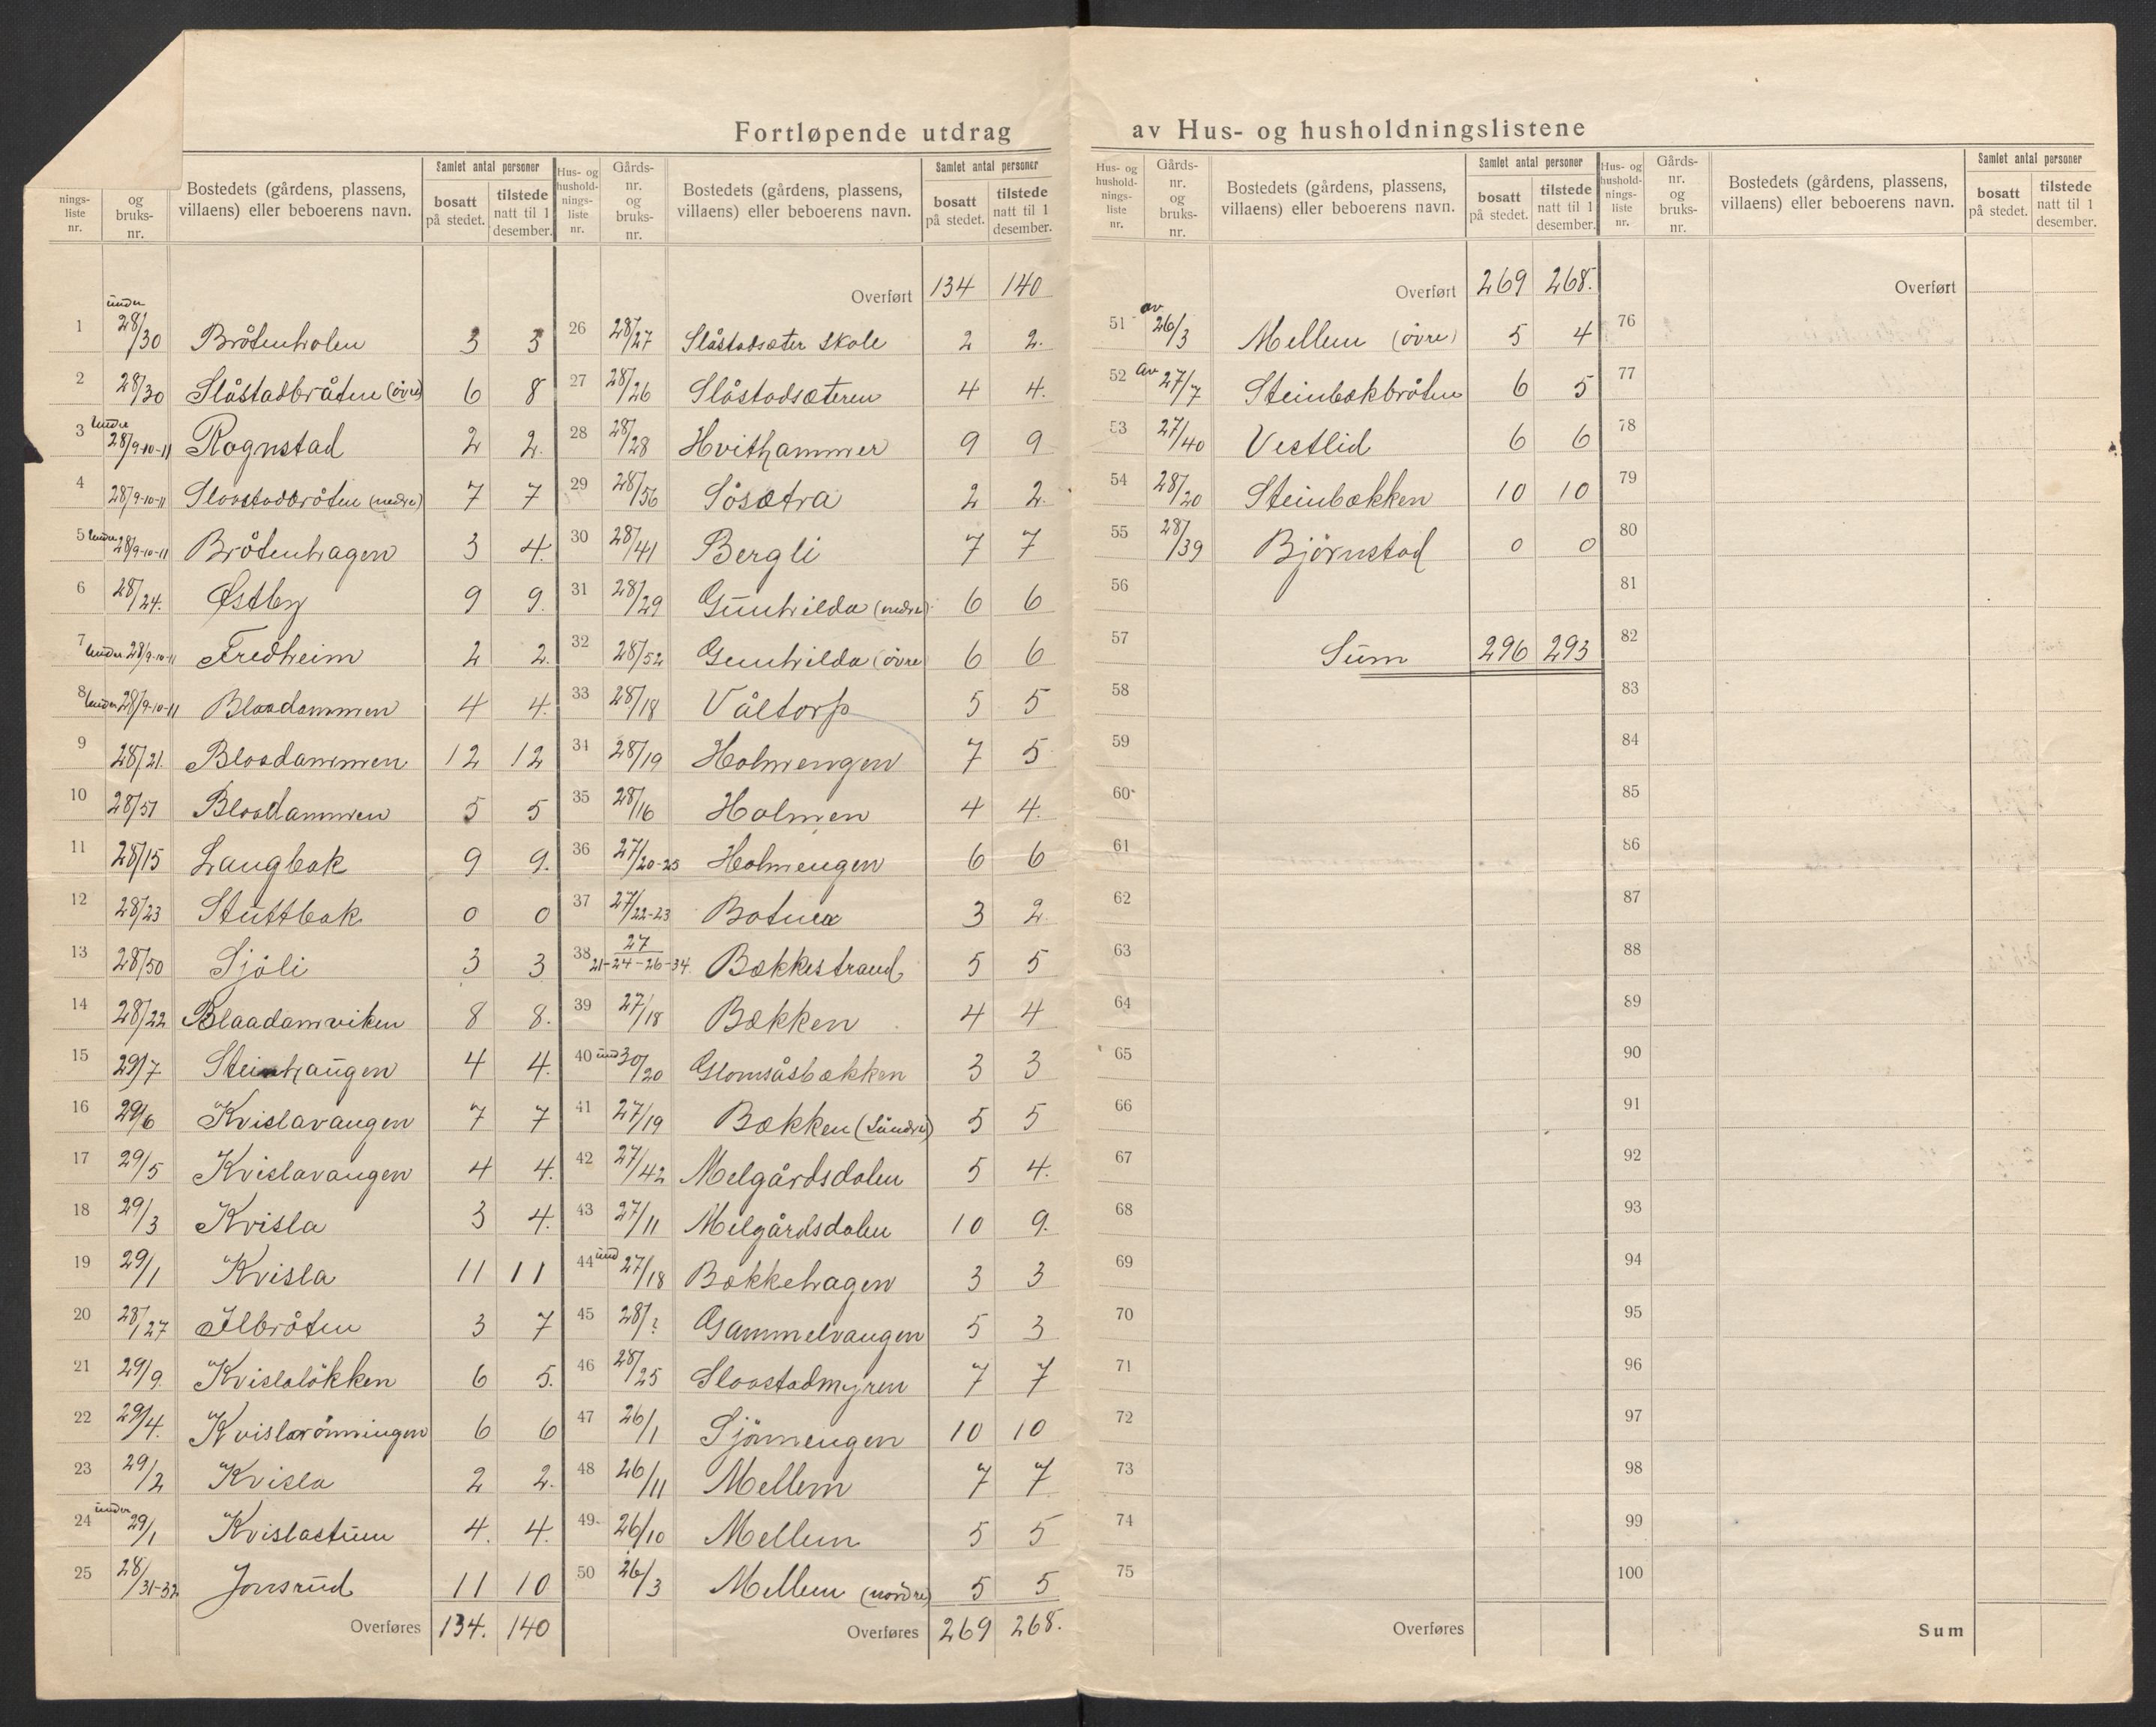 Fortløpende utdrag av Hus- og husholdningslistene
nings-liste nr. | og bruks-nr. | Bostedets (gårdens, plassens, villaens) eller beboerens navn. | Samlet antal personer | bosatt på stedet. | tilstede natt til 1 desember.
1 under 28/30 Bråtenholen 3 3
2 28/30 Slåstadbråten (övre) 6 8
3 under 28/9-10-11 Rognstad 2 2.
4 28/9-10-11 Slaastadbråten (nedre) 7 7
5 under 28/9-10-11 Bråtenhagen 3 4.
6 28/24. Østby 9 9.
7 under 28/9-10-11 Fredheim 2 2.
8 under 28/9-10-11 Blaadammen 4 4.
9 28/21. Blaadammen 12 12
10 28/51 Blaadammen 5 5
11 28/15 Langbak 9 9.
12 28/23 Stuttbak 0 0
13 28/50 Sjöli 3 3
14 28/22 Blaadamviken 8 8.
15 29/7 Steinhaugen 4 4.
16 29/6 Kvislavangen 7 7
17 29/5 Kvislavangen 4 4.
18 29/3 Kvisla 3 4.
19 29/1 Kvisla 11 11
20 28/27 Ilbråten 3 7
21 29/9. Kvislalökken 6 5.
22 29/4. Kvislarönningen 6 6
23 29/2 Kvisla 2 2.
24 under 29/1 Kvislastuen 4. 4.
25 28/31-32 Jonsrud 11 10
Overføres 134. 140
Hus- og hushold-nings-liste nr. | Gårds-nr. og bruks-nr. | Bostedets (gårdens, plassens, villaens) eller beboerens navn. | Samlet antal personer | bosatt på stedet. | tilstede natt til 1 desember.
Overført 134 140
26 28/27 Slåstadsæter skole 2 2.
27 28/26 Slåstadsæteren 4 4.
28 28/28 Hvithammer 9 9
29 28/56 Såsætra 2 2.
30 28/41 Bergli 7 7
31 28/29 Gunhilda (nedre) 6 6
32 28/52 Gunhilda (övre) 6 6
33 28/18 Våltorp 5 5
34 28/19 Holmengen 7 5
35 28/16 Holmen 4 4.
36 27/20-25 Holmengen 6 6
37 27/22-23 Botnen 3 2
38 27/21-24-26-34. Bækkestrand 5 5
39 27/18 Bækken 4 4
40 und 30/20 Glomsåsbækken 3 3
41 27/19 Bækken (Søndre) 5 5
42 27/42 Melgårdsdalen 5 4.
43 27/11 Melgårdsdalen 10 9.
44 und 27/18 Bækkehagen 3 3
45 28/? Gammelvangen 5 3
46 28/25 Slaastadmyren 7 7
47 26/1 Sjönnengen 10 10
48 26/11 Mellem 7 7
49 26/10 Mellem 5 5
50 26/3 Mellem (nordre) 5 5
Overføres 269 268.
Hus- og hushold-nings-liste nr. | Gårds-nr. og bruks-nr. | Bostedets (gårdens, plassens, villaens) eller beboerens navn. | Samlet antal personer | bosatt på stedet. | tilstede natt til 1 desember.
Overført 269 268.
51 av 26/3 Mellem (övre) 5 4
52 av 27/7 Steinbækbråten 6 5
53 27/40 Vestlid 6 6
54 28/20 Steinbækken 10 10
55 28/39 Björnstad 0 0
56
57 Sum 296 293
58
59
60
61
62
63
64
65
66
67
68
69
70
71
72
73
74
75
Overføres
Hus- og hushold-nings-liste nr. | Gårds-nr. og bruks-nr. | Bostedets (gårdens, plassens, villaens) eller beboerens navn. | Samlet antal personer | bosatt på stedet. | tilstede natt til 1 desember.
Overført
76
77
78
79
80
81
82
83
84
85
86
87
88
89
90
91
92
93
94
95
96
97
98
99
100
Sum